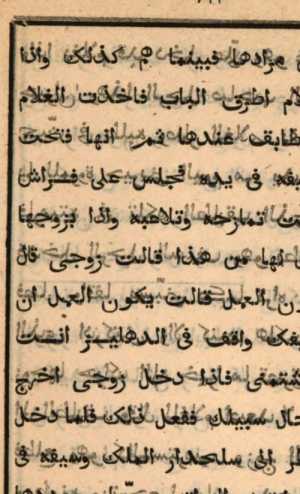 مرادها فبينما هم كذلك واذا
اطرق الباب فاخذت الغلام
طابق عندها ثمر انها فتحت
فى يده فجلس على فراش
تمازحه وتلاعبه واذا بزوجها
لها من هذا قالت زوجى قال
العمل قالت يكون العمل ان
واقف فى الدهليز انت
تشتمنى فاذا دخل زوجى اخرج
حال سبيلك ففعل ذلك فلما دخل
الى سلحدار الملك وسيفه فى